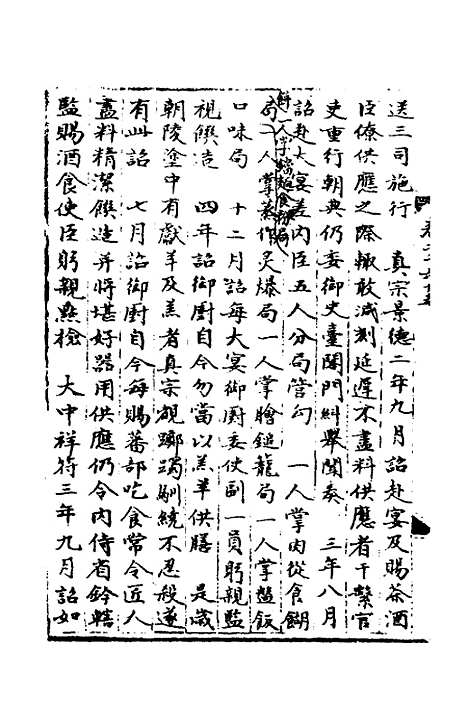 送三司施行　真宗景德二年九月詔赴宴及賜茶酒
臣僚供應之際輒敢減刻延遲不盡料供應者干繫官
吏重行朝典仍委御史臺閤門糾舉聞奏　三年八月
詔赴大宴差內臣五人分局管勾　一人掌肉從食餬
餅一人
局一人掌蒸作炙爆局一人掌膾鎚龍局一人掌盤飯
口味局　十二月詔每大宴御廚委使副一員躬親監
視饌造　四年詔御廚自今勿當以羔羊供膳　是歲
朝陵塗中有獻羊及羔者真宗覩躑躅馴繞不忍殺遂
有此詔　七月詔御廚自今每賜蕃部吃食常令匠人
盡料精潔饌造并將堪好器用供應仍令內侍省鈐轄
監賜酒食使臣躬親點檢　大中祥符三年九月詔如